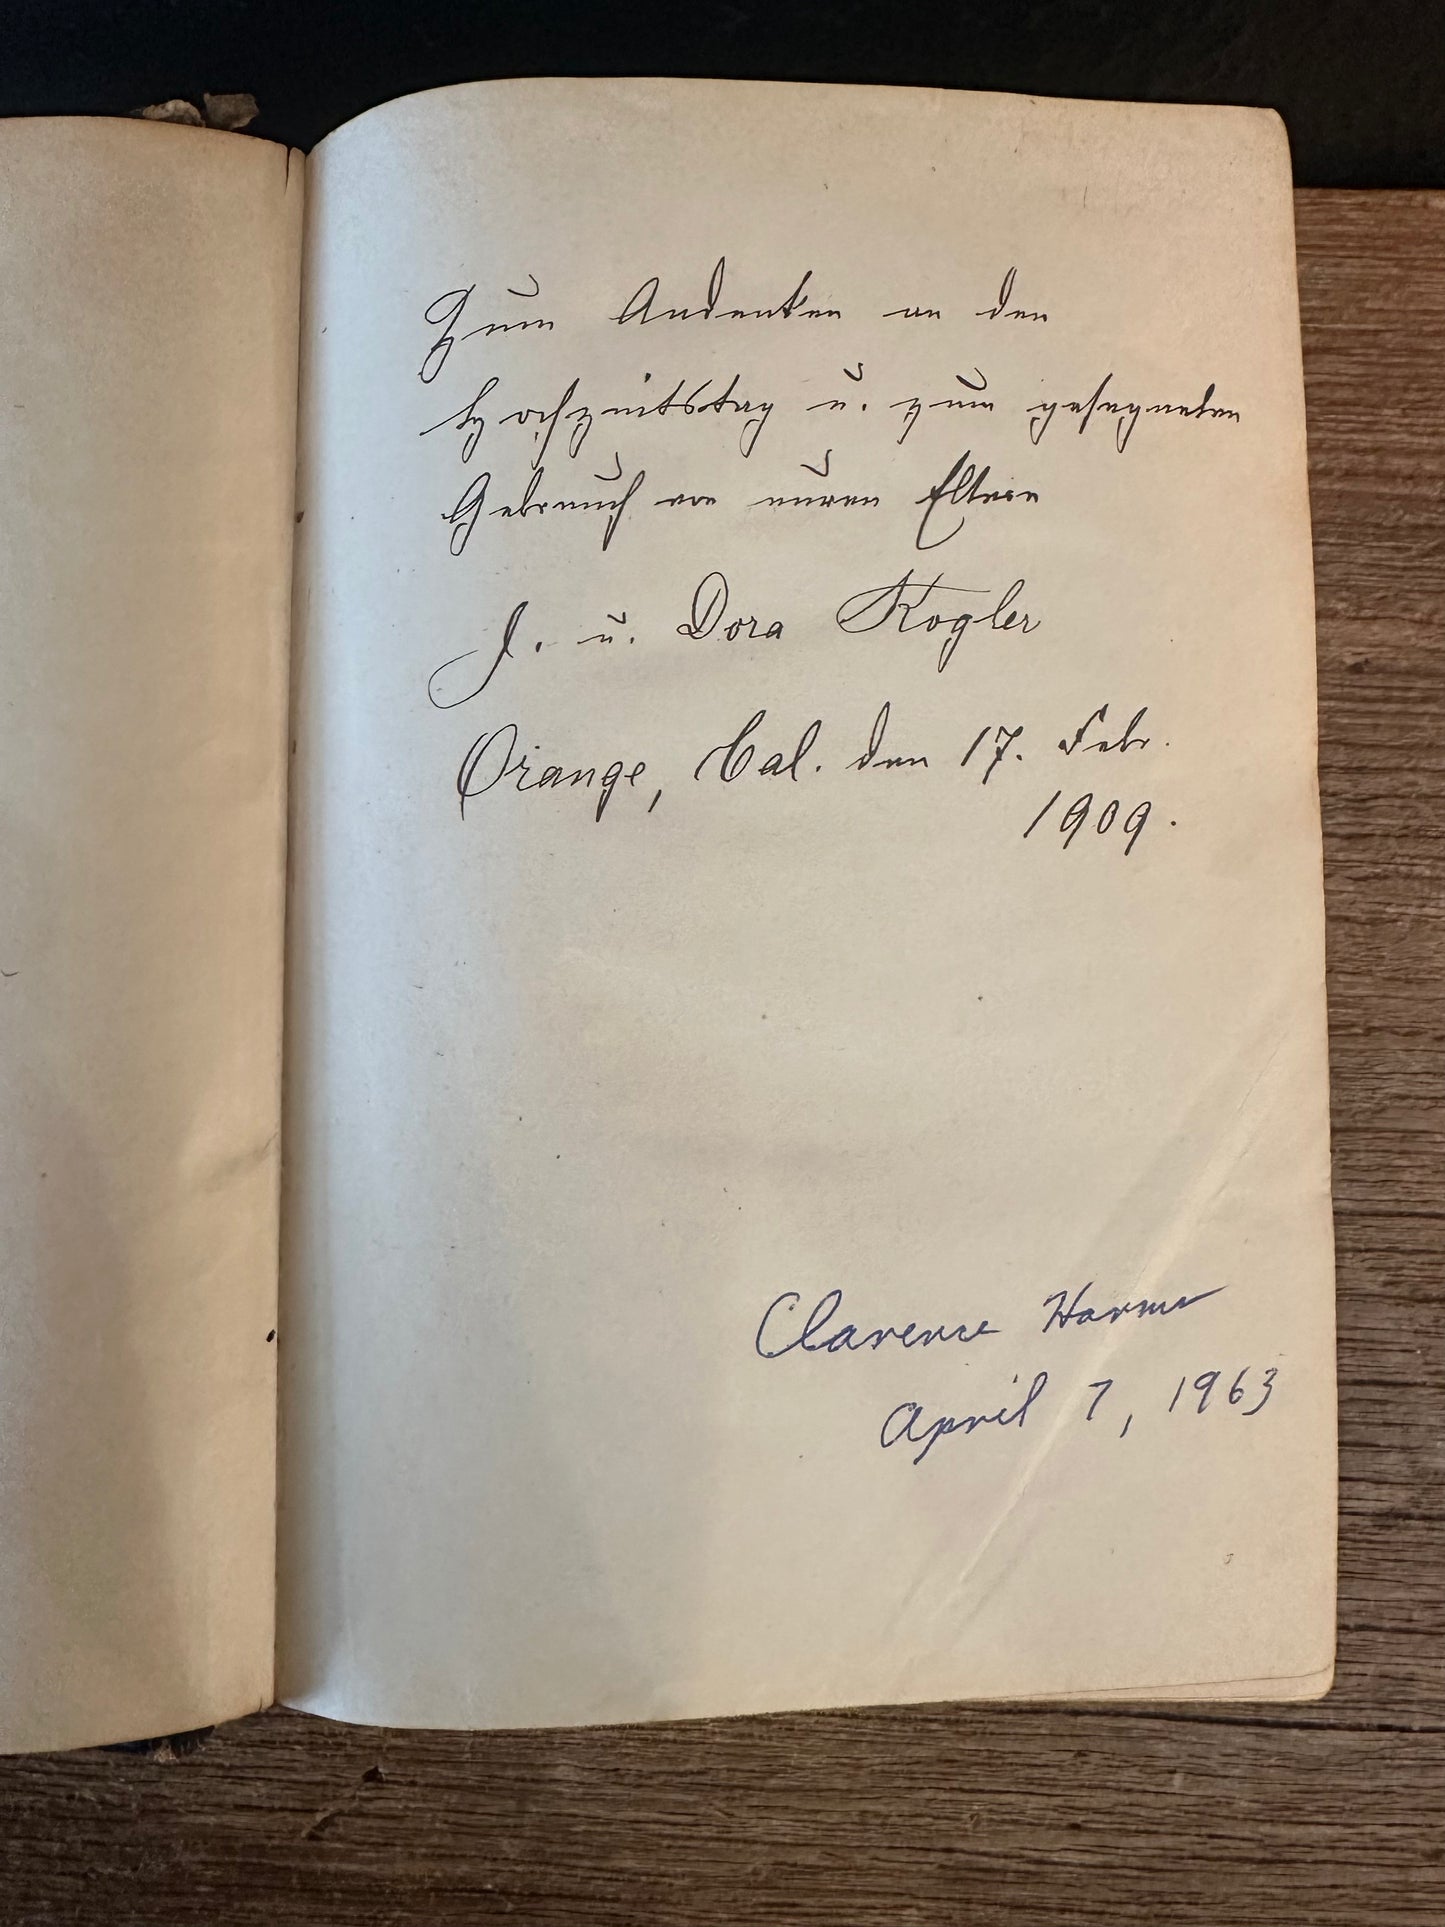 Zum Andenken an den
Hochzeitstag u. zum gesegneten
Gebrauch von euren Eltern
J. u. Dora Kogler
Orange, Cal. den 17. Febr.
1909.
Clarence
April 7, 1963